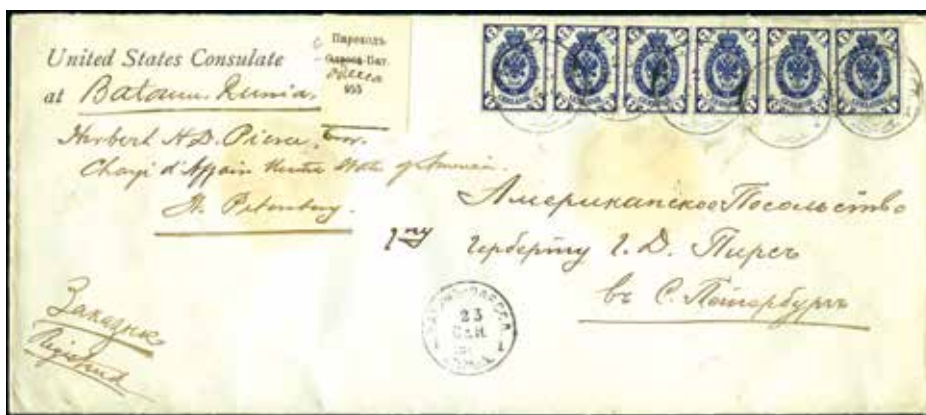 United States Consulate
at Batoum. Russia.
Пароходъ
Одесса-Бат.
Одесса
955
Herbert H. D. Pierce, Esqr.
Chargé d'Affair United State of America.
St. Petersburg.
Американское Посольство
1ну Герберту Г. Д. Пирсъ
въ С. Петербургъ
Заказное
Registered
23